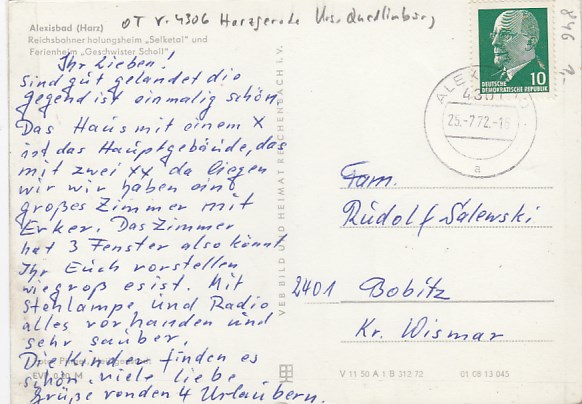 OT v. 4306 Harzgerode Krs. Quedlinburg
846
1,-
Alexisbad (Harz)
Reichsbahnerholungsheim „Selketal" und
Ferienheim „Geschwister Scholl"
Ihr Lieben!
Sind gut gelandet die
gegend ist einmalig schön.
Das Haus mit einem X
ist das Hauptgebäude, das
mit zwei xx da liegen
wir wir haben ein
großes Zimmer mit
Erker. Das Zimmer
hat 3 Fenster also könnt
Ihr Euch vorstellen
wie groß es ist. Mit
Stehlampe und Radio
alles vorhanden und
sehr sauber.
Die Kinder finden es
schön. viele liebe
Grüße von den 4 Urlaubern.
VEB BILD UND HEIMAT REICHENBACH I. V.
DEUTSCHE
DEMOKRATISCHE REPUBLIK
10
4301
25.-7.72.-16
a
Fam.
Rudolf Salewski
2401 Bobitz
Kr. Wismar
V 11 50 A 1 B 312/72
01 08 13 045